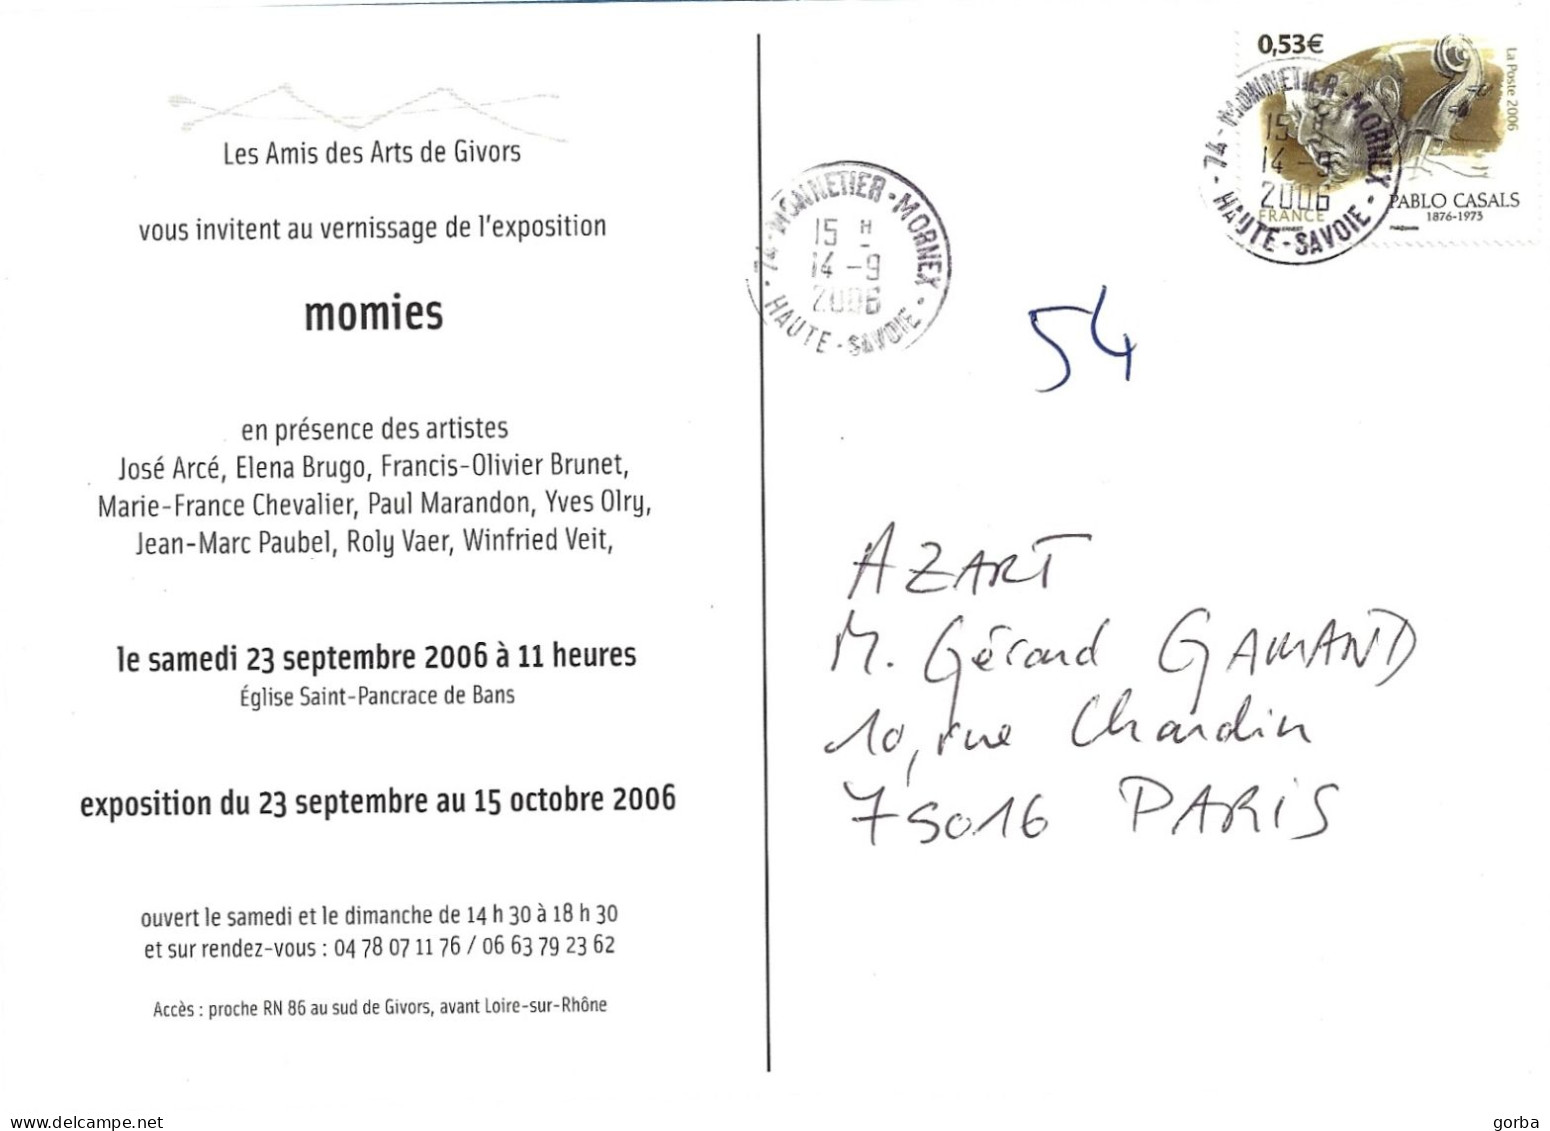 Les Amis des Arts de Givors
vous invitent au vernissage de l'exposition
momies
en présence des artistes
José Arcé, Elena Brugo, Francis-Olivier Brunet,
Marie-France Chevalier, Paul Marandon, Yves Olry,
Jean-Marc Paubel, Roly Vaer, Winfried Veit,
le samedi 23 septembre 2006 à 11 heures
Église Saint-Pancrace de Bans
exposition du 23 septembre au 15 octobre 2006
ouvert le samedi et le dimanche de 14 h 30 à 18 h 30
et sur rendez-vous : 04 78 07 11 76 / 06 63 79 23 62
Accès : proche RN 86 au sud de Givors, avant Loire-sur-Rhône
74 - MONNETIER - MORNEX -
15 H
14 - 9
2006
HAUTE - SAVOIE -
0,53€
La Poste 2006
74 - MONNETIER - MORNEX
15 H
14 - 9
2006
HAUTE - SAVOIE -
FRANCE
PABLO CASALS
1876-1973
54
AZART
M. Gérard GAMAND
10, rue Chardin
75016 PARIS
delcampe.net
gorba